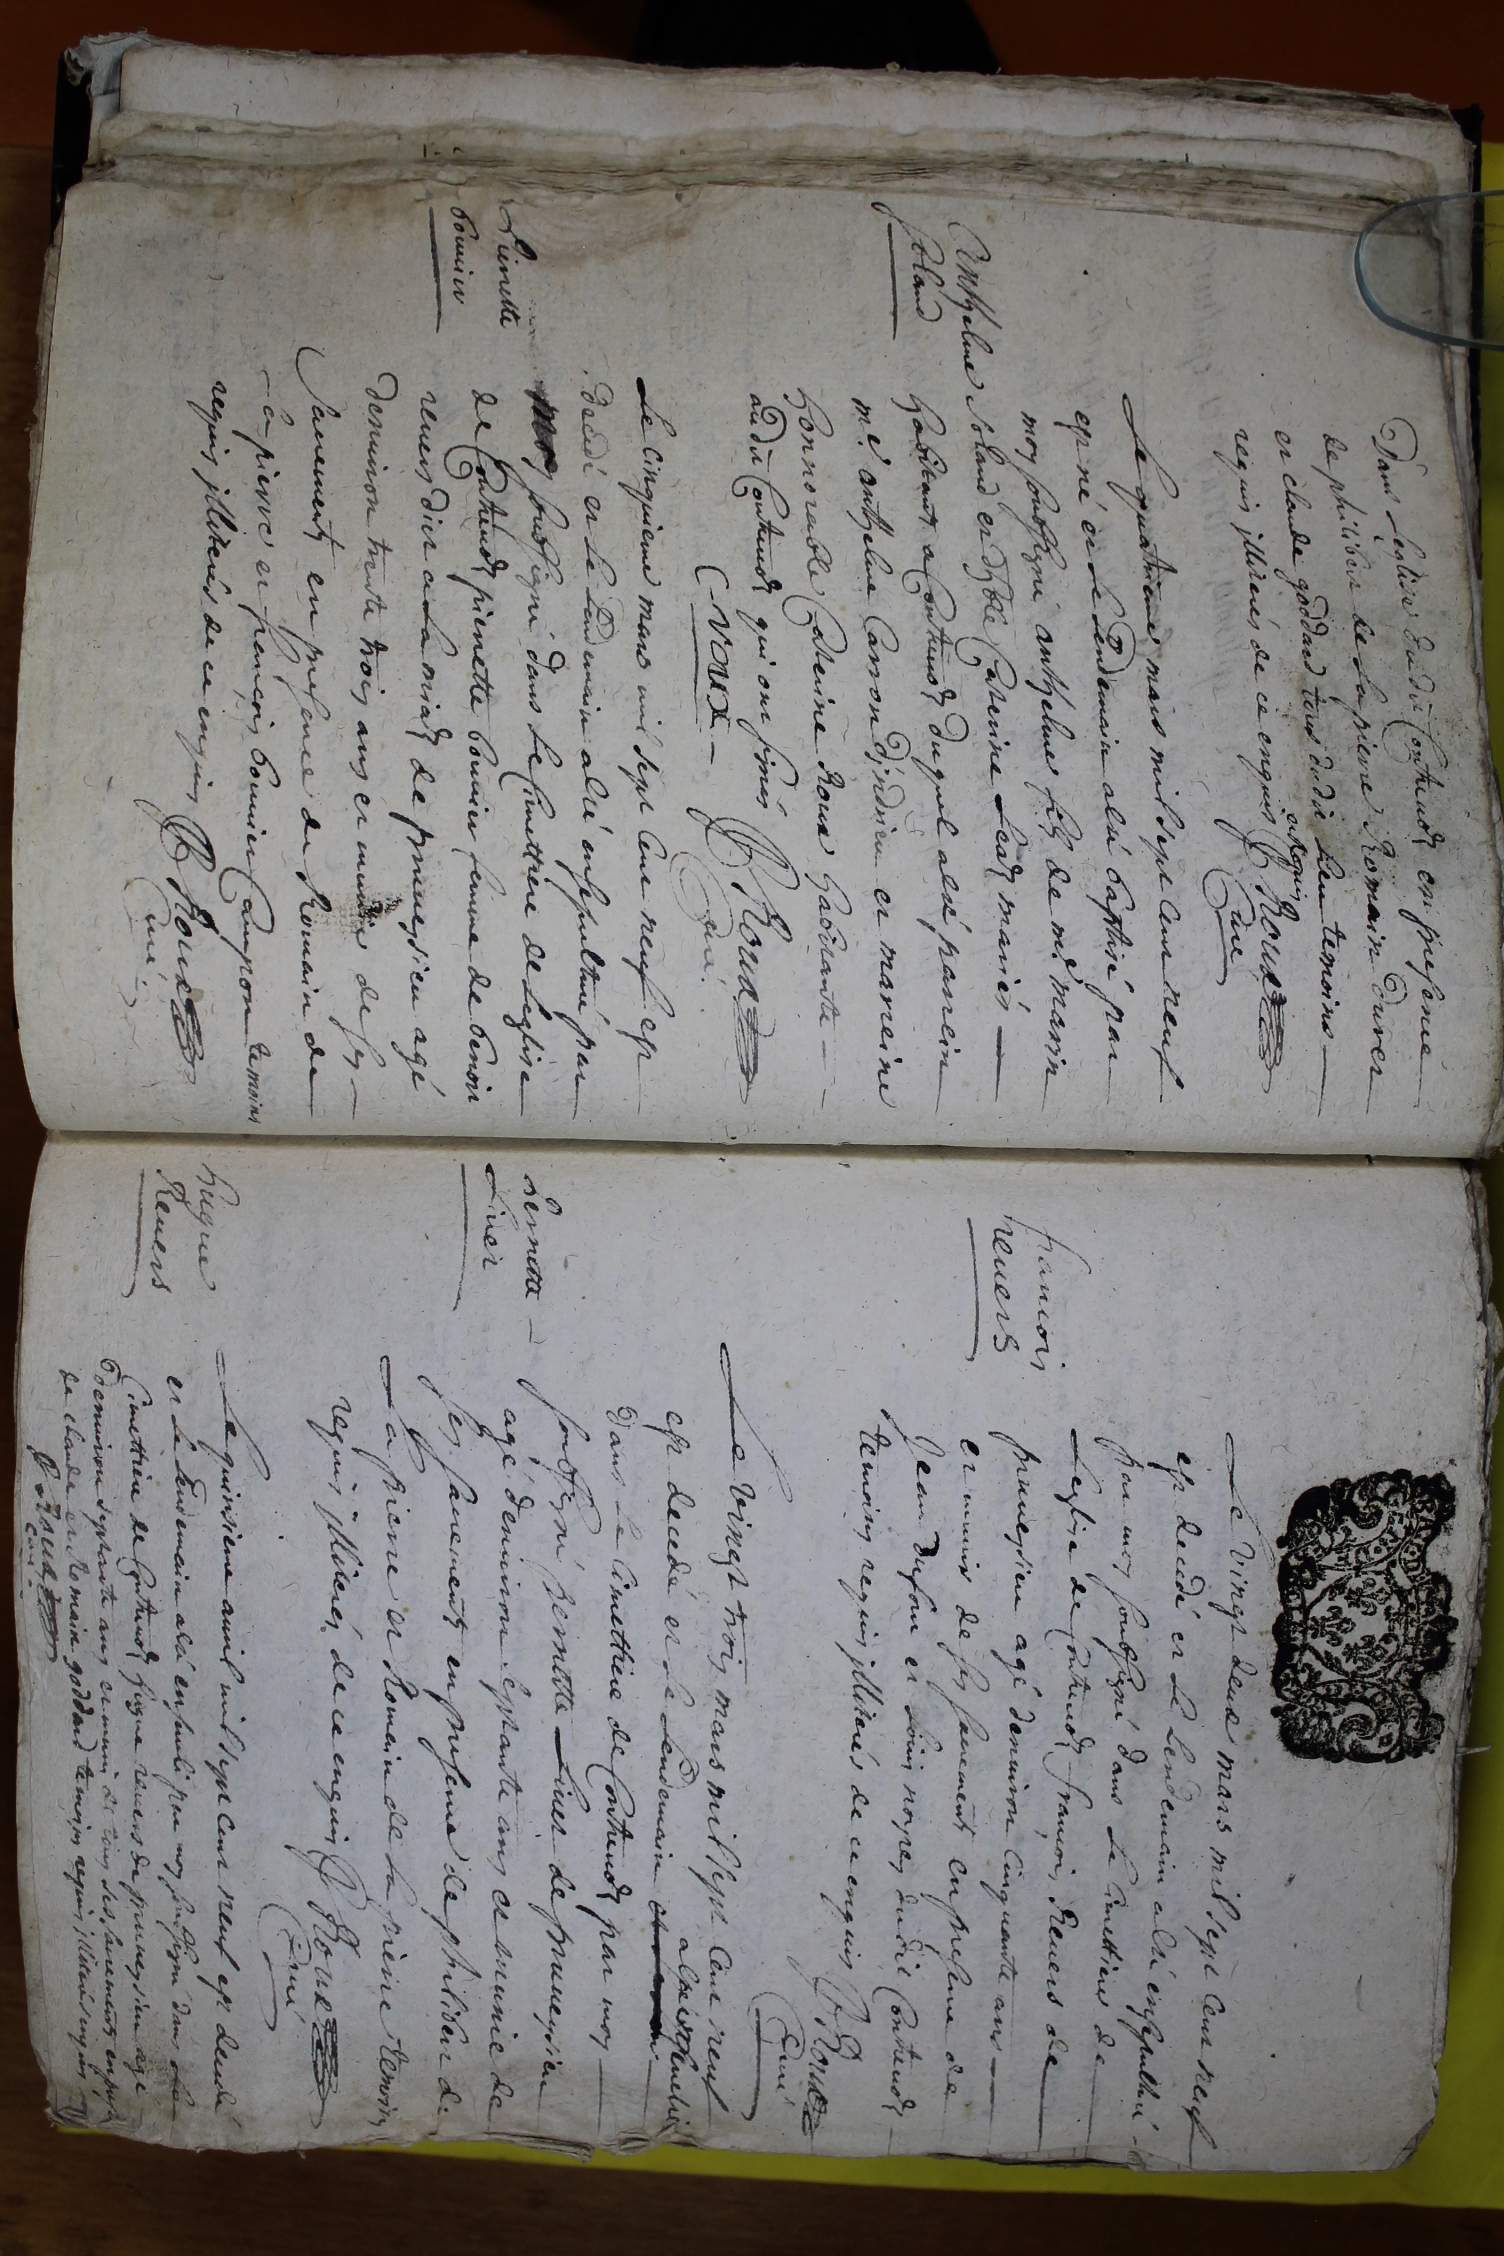 Dans Leglise dudit Contrevoz en presence
de philibert de Lapierre Romain Duret
et claude goddard tous dudit Lieu temoins
requis illiterés de ce enquis et requis J Roux
Curé
Anthelme
Soland
Le quatrieme mars mil sept cent neuf
est né et Le Lendemain a été baptisé par
moy soubsigné anthelme fils de me marin
Soland et dhble Caterine Leat mariés
habitants a Contrevoz duquel a été parrein
me anthelme Carron et marreine
honnorable Caterine Roux habitante
audit Contrevoz qui ont signés J Roux
Curé
Pierrette
bouvier
Le cinquieme mars mil sept cent neuf est
decedé et Le Lendemain a été ensepulturé par
Moy soubsigné dans Le Cimettiere de Leglise
de Contrevoz pierrette bouvier femme de benoit
revers dit a La miaz de preveysieu agé
denviron trente trois ans et munie de ses
Sacrements en presence de Romain de
La pierre et francois bouvier temoins
requis illiterés de ce enquis J Roux
Curé
francois
revers
Le vingt deux mars mil sept cent neuf
est decedé et Le Lendemain a été ensepulturé
par moy soubsigné dans Le Cimettiere de
Leglise de Contrevoz francois Revers de
preveysieu agé denviron cinquante ans
et munir de ses sacrements en presence de
Jean dufour et dudit Contrevoz
temoins requis illiterés de ce enquis J Roux
Curé
Pernette
Liver
Le vingt trois mars mil sept cent neuf
est decedé et Le Lendemain a été ensevelie
dans Le Cimettiere de Contrevoz par moy
soubsigné pernette Liver de preveysieu
agé denviron septante ans et munie de
ses sacrements en presence de philibert de
La pierre et Romain de La pierre temoins
requis illiterés de ce enquis J Roux
Curé
hugue
Revers
Le quinsieme avril mil sept cent neuf est decedé
et Le Lendemain a été enseveli par moy soubsigné dans Le
Cimettiere de Contrevoz hugue revers de preveysieu agé
denviron septante ans et muni de tous ses sacrements en presence
de claude et Romain goddard temoins requis illiterés enquis
J Roux
Curé